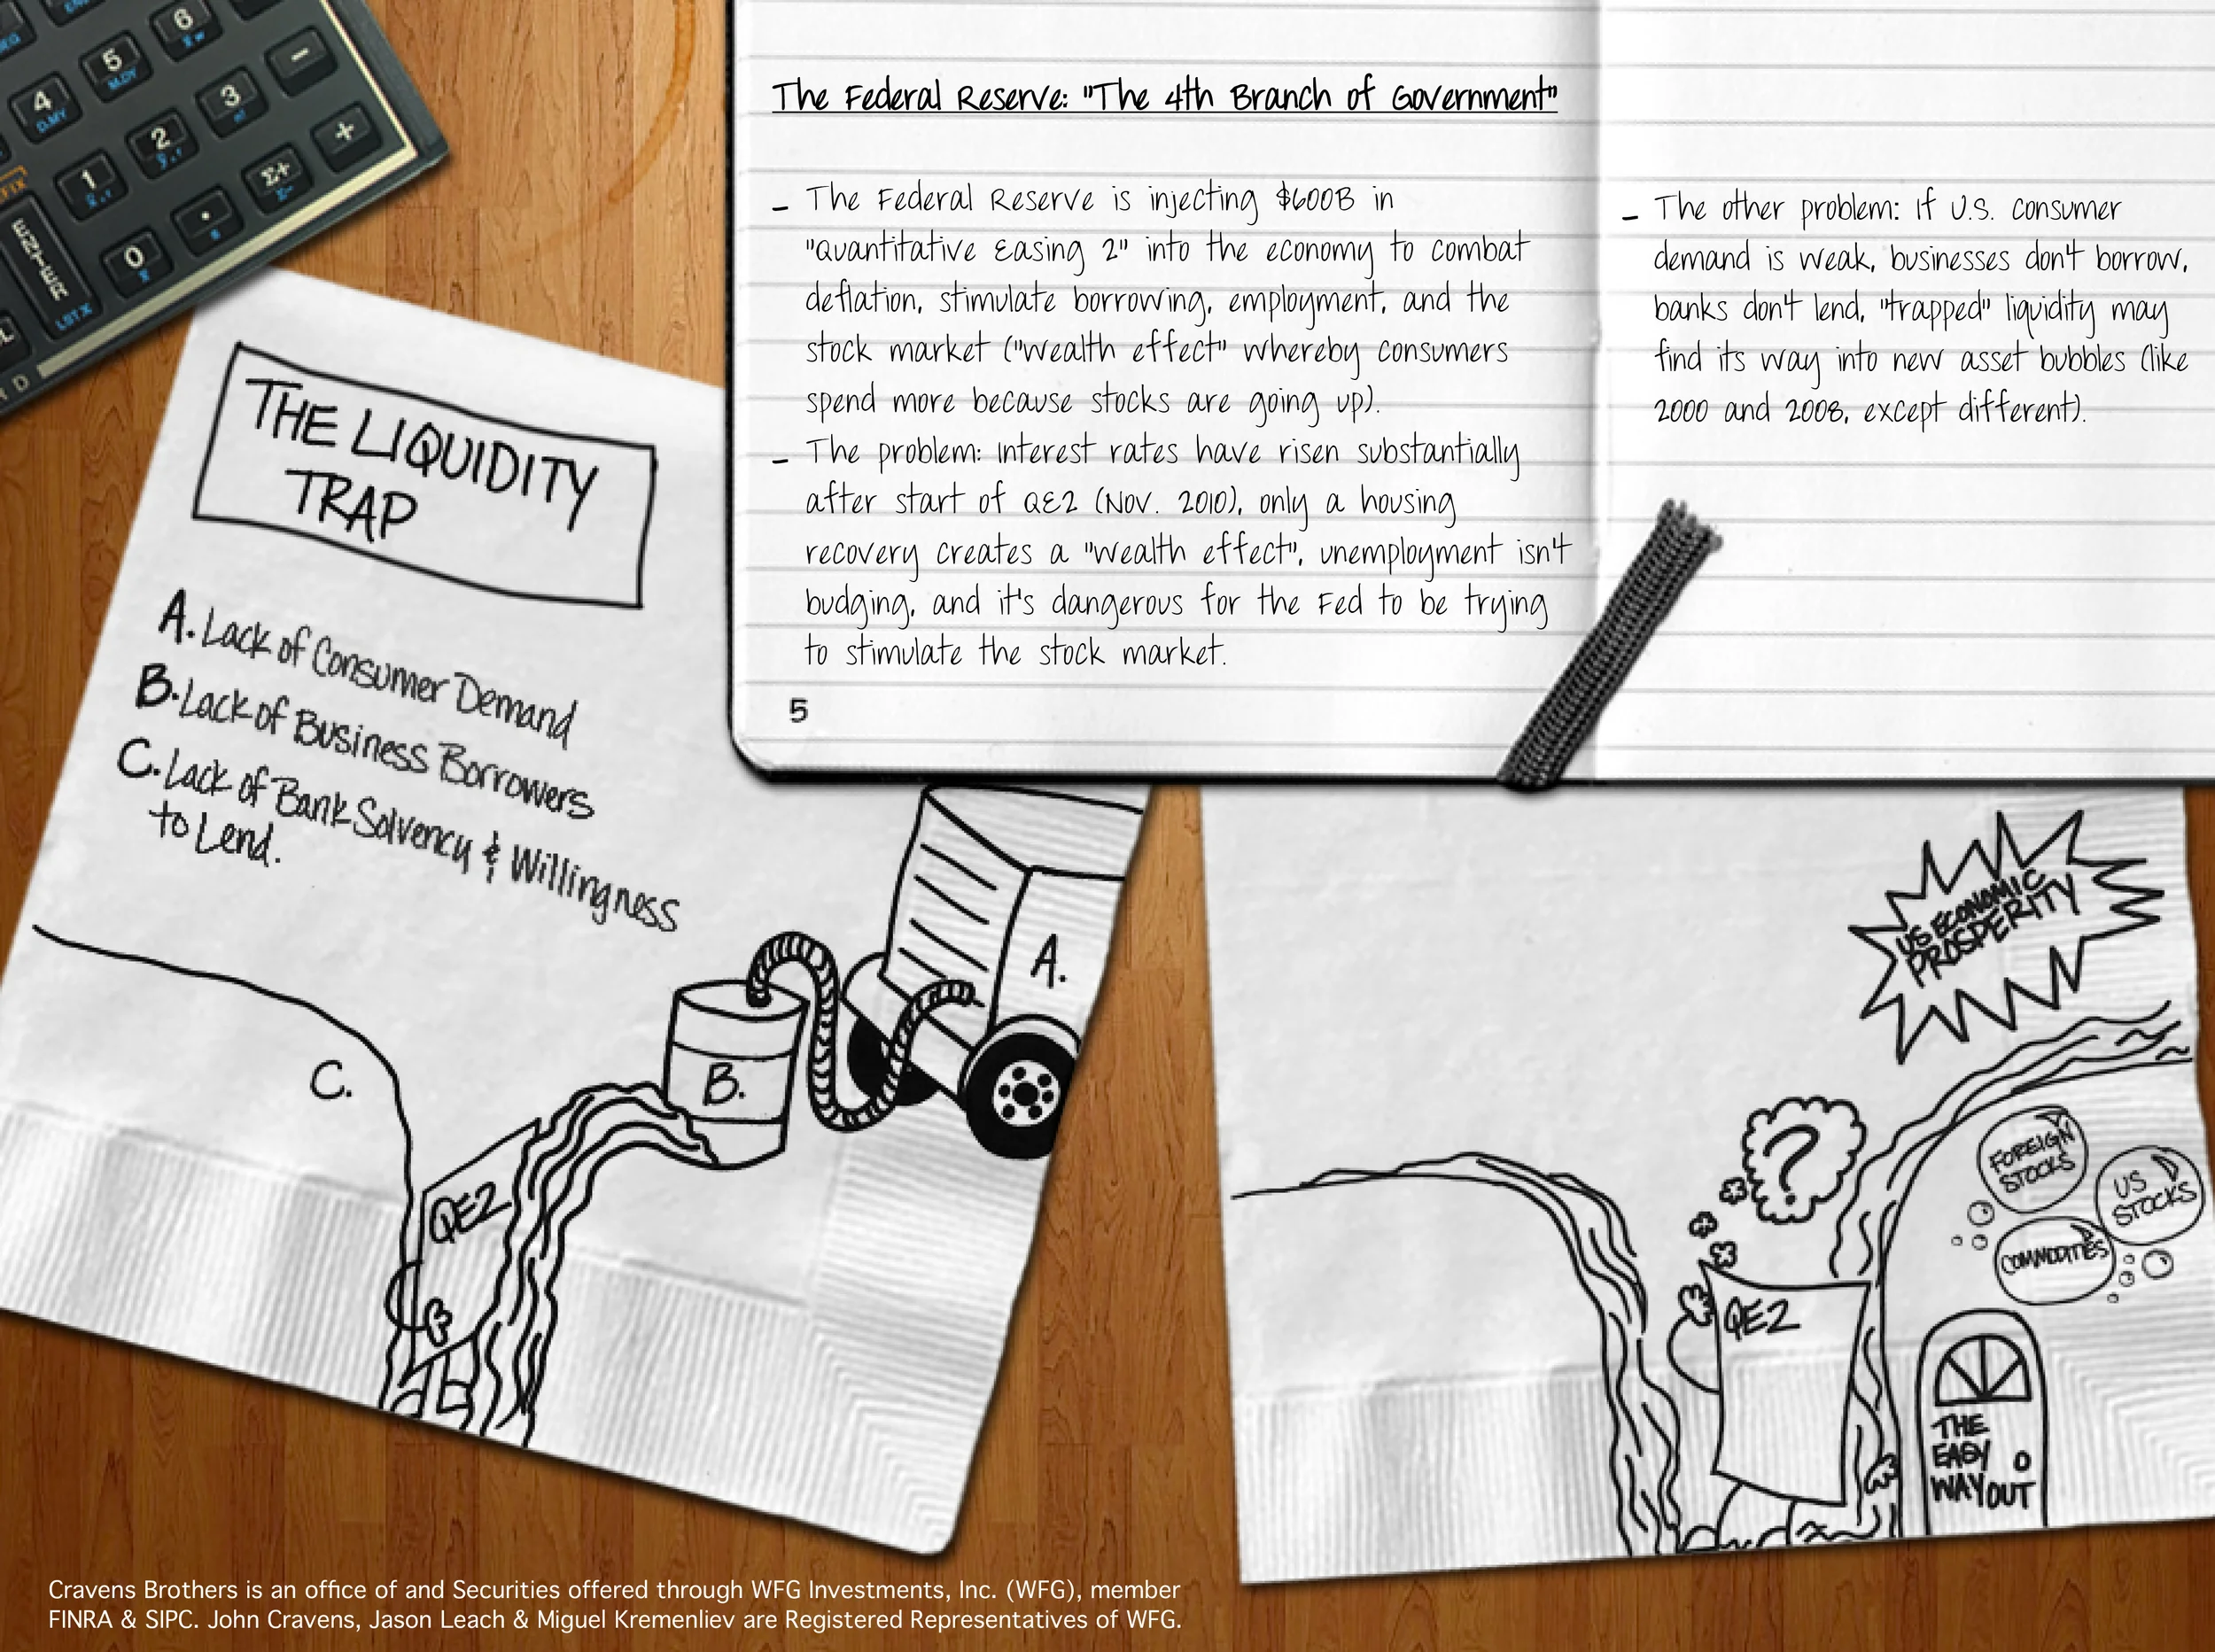 6
5
M.DY
4
D.MY
3
2
1
0
−
+
Σ+
Σ-
.
ENTER
LSTX
The Federal Reserve: "The 4th Branch of Government"
– The Federal Reserve is injecting $600B in
"Quantitative Easing 2" into the economy to combat
deflation, stimulate borrowing, employment, and the
stock market ("wealth effect" whereby consumers
spend more because stocks are going up).
– The problem: Interest rates have risen substantially
after start of QE2 (Nov. 2010), only a housing
recovery creates a "wealth effect", unemployment isn't
budging, and it's dangerous for the Fed to be trying
to stimulate the stock market.
5
– The other problem: If U.S. consumer
demand is weak, businesses don't borrow,
banks don't lend, "trapped" liquidity may
find its way into new asset bubbles (like
2000 and 2008, except different).
THE LIQUIDITY
TRAP
A. Lack of Consumer Demand
B. Lack of Business Borrowers
C. Lack of Bank Solvency & Willingness
to Lend.
A.
B.
C.
QE2
US ECONOMIC
PROSPERITY
?
FOREIGN
STOCKS
US
STOCKS
COMMODITIES
QE2
THE
EASY
WAY OUT
Cravens Brothers is an office of and Securities offered through WFG Investments, Inc. (WFG), member
FINRA & SIPC. John Cravens, Jason Leach & Miguel Kremenliev are Registered Representatives of WFG.